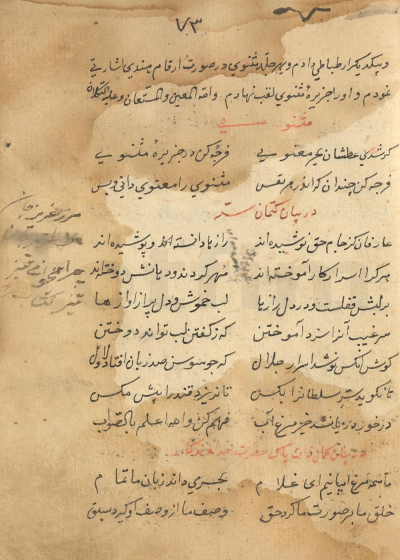 ۷۳
و بیکدیکر ارطباطی دادم و بهر جلد مثنوی در صورت ارقام هندی اشارتی
نمودم و او را جزیرهٔ مثنوی لقب نهادم والله المعین و المستعان و علیه التکلان
مثنوی
کر شدی عطشان بحر معنوی فرجهٔ کن در جزیرهٔ مثنوی
فرجه کن چندان که اندر هر نفس مثنوی را معنوی دانی و بس
در بیان کتمان سر
عارفان که جام حق نوشیده اند رازها دانسته اند و پوشیده اند
هر کرا اسرار کار آموختند مهر کردند و دهانش دوختند
بر لبش قفلست و در دل رازها لب خموش و دل پر از آوازها
سر غیب آنرا سزد آموختن که ز گفتن لب تواند دوختن
کوش آنکس نوشد اسرار جلال که چو سوسن صد زبان افتاد و لال
تا نکوید سر سلطانرا بکس تا نریزد قند را پیش مکس
در خور دریا نشد جز مرغ آب فهم کن والله اعلم بالصواب
ما همه مرغ آبیانیم ای غلام بحر می داند زبان ما تمام
خلق ما بر صورت خود کرد حق وصف ما از وصف او کیرد سبق